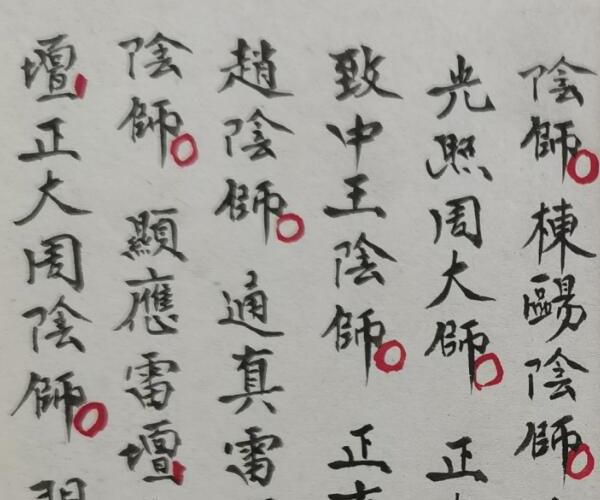 陰師棟陰師
光照周大師正
致中王陰師正
趙陰師通真雷
陰師顯應雷壇
壇正大周陰師